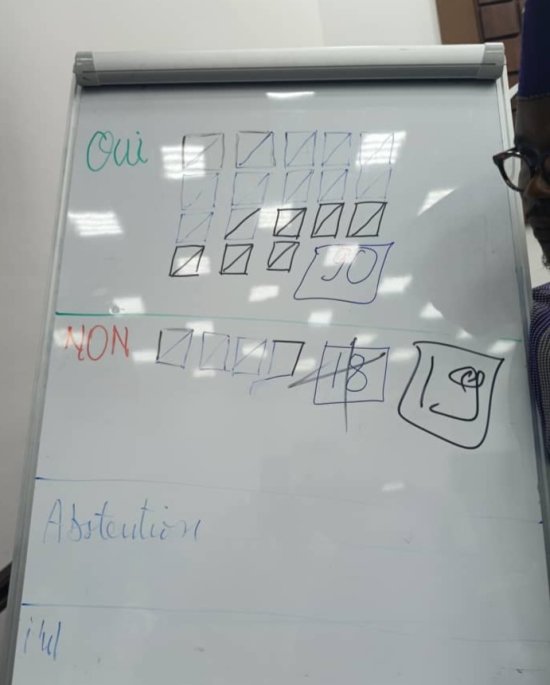 Oui
90
NON 18 19
Abstention